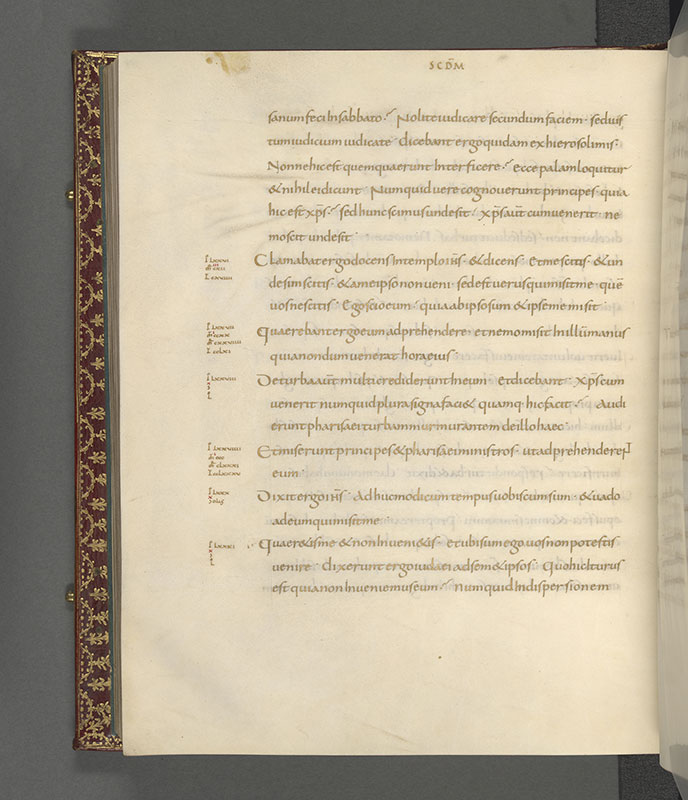 SCDM̄
sanum feci In sabbato · Nolite iudicare secundum faciem · sed ius
tum iudicium iudicate dicebant ergo quidam ex hierosolimis ·
Nonne hic est quem quaerunt Inter ficere · ecce palam loquitur
& nihil ei dicunt Numquid uere cognouerunt principes · quia
hic est xp̄s · sed hunc scimus unde sit · xp̄s aut̄ cum uenerit · ne
mo scit unde sit ·
Clamabat ergo docens In templo ih̄s · & dicens · Et me scitis · & un
de sim scitis · & a me ipso non ueni · sed est uerus qui misit me · quē
uos nescitis · Ego scio eum · quia ab ipso sum & ipse me misit
Quaerebant ergo eum adprehendere · et nemo misit In illum manus
quia nondum uenerat hora eius ·
De turba aut̄ multi crediderunt In eum · Et dicebant · Xp̄s cum
uenerit numquid plura signa faci& quam q· hic facit · Audi
erunt pharisaei turbam murmurantem de illo haec ·
Et miserunt principes & pharisaei ministros · ut adprehenderent
eum ·
Dixit ergo ih̄s · Ad huc modicum tempus uobiscum sum · & uado
ad eum qui misit me ·
Quaer&is me & non Inueni&is · et ubi sum ego uos non potestis
uenire · dixerunt ergo iudaei ad sem& ipsos · Quo hic Iturus
est quia non Inueniemus eum · Numquid In dispersionem